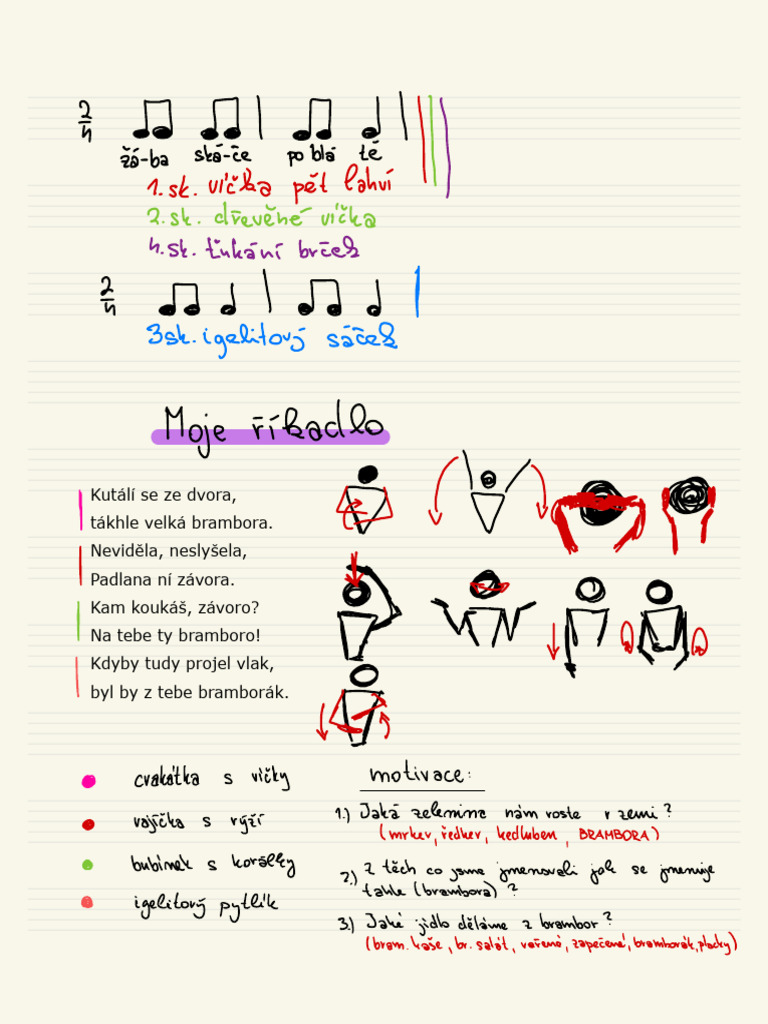 2/4
žá-ba ská-če po blá tě
1.sk. víčka pět lahví
2.sk. dřevěné víčka
4.sk. ťukání brček
2/4
3sk. igelitový sáček
Moje říkadlo
Kutálí se ze dvora,
tákhle velká brambora.
Neviděla, neslyšela,
Padlana ní závora.
Kam koukáš, závoro?
Na tebe ty bramboro!
Kdyby tudy projel vlak,
byl by z tebe bramborák.
cvakátka s víčky
vajíčka s rýží
bubínek s korálky
igelitový pytlík
motivace:
1.) Jaká zelenina nám roste v zemi?
(mrkev, ředkev, kedluben, BRAMBORA)
2.) Z těch co jsme jmenovali jak se jmenuje
takle (brambora)?
3.) Jaké jídlo děláme z brambor?
(bram. kaše, br. salát, vařené, zapečené, bramborák, placky)